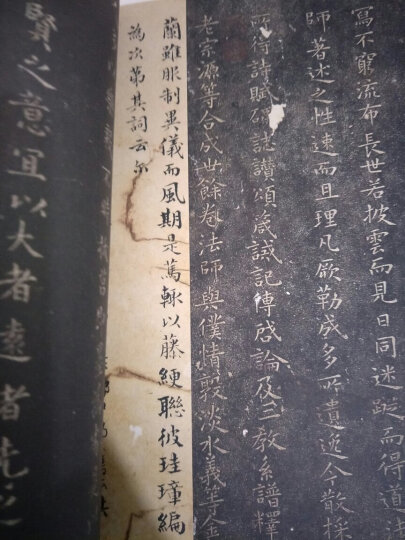 寫不窮流布長世若披雲而見日同迷蹤而得道法
師著述之性速而且理凡厥勒成多所遺逸今散採
所得詩賦碑誌讚頌箴誡記傳啓論及三教系譜釋
老宗源等合成卅餘卷法師與僕情敦淡水義等金
蘭雖服制異儀而風期是篤輒以藤綆聯彼珪璋編
為次第其詞云尔
賢之意宜以大者遠者先之